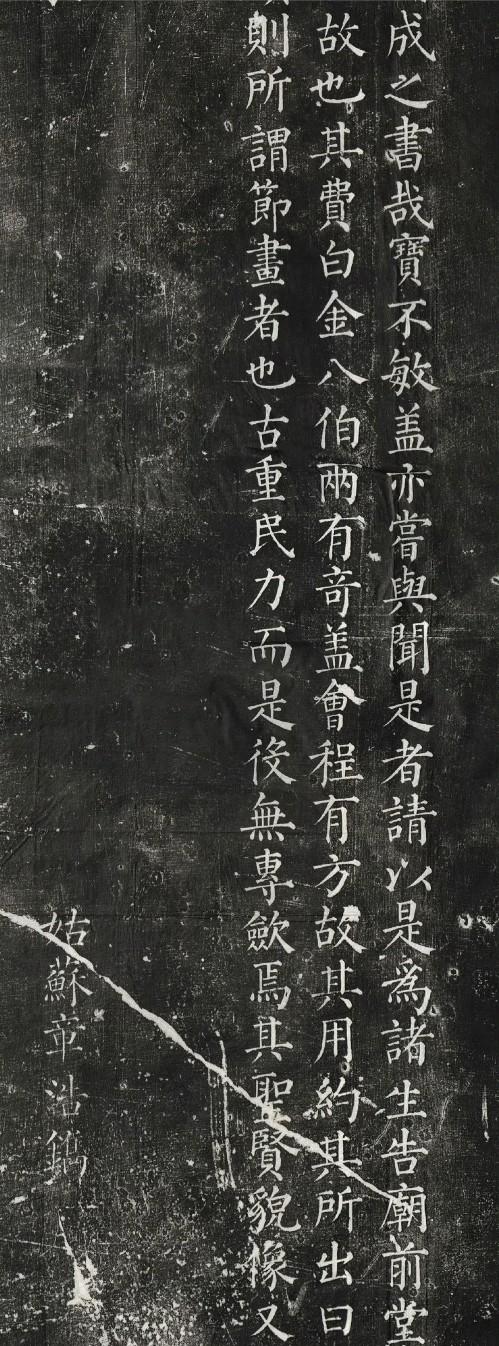 成之書哉寶不敏盖亦嘗與聞是者請以是爲諸生告廟前堂
故也其費白金八伯兩有奇盖會程有方故其用約其所出曰
則所謂節畫者也古重民力而是役無專歛焉其聖賢貌像又
姑蘇章浩鐫